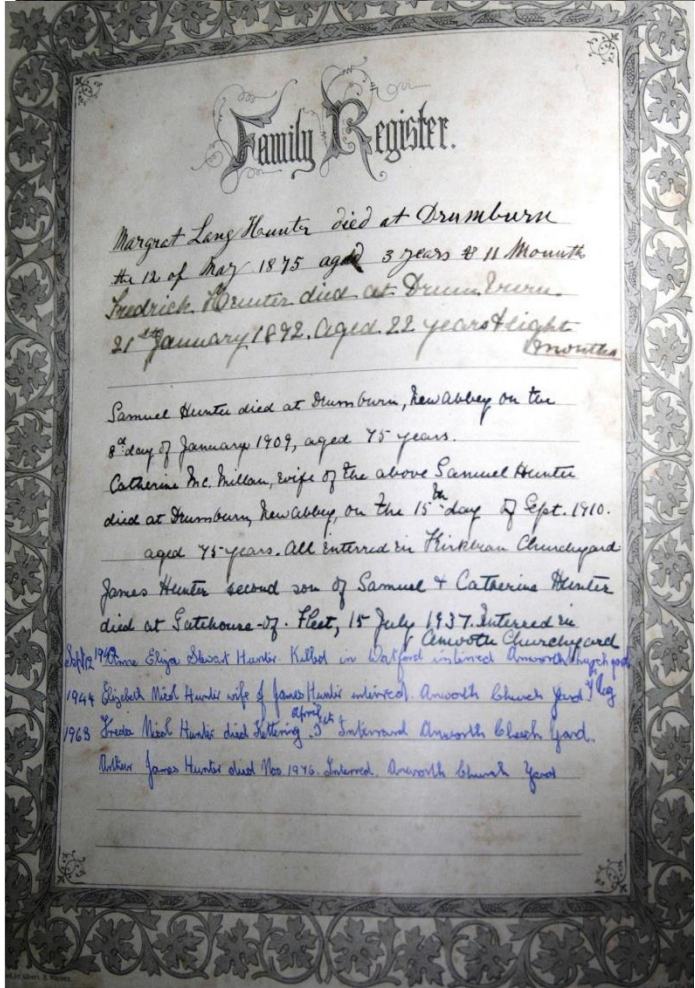 Family Register.
Margrat Lang Hunter died at Drumburn
the 12 of May 1875 aged 3 years & 11 Mounth
Fredrick Hunter died at Drumburn
21st January 1892. aged 22 years & eight
months
Samuel Hunter died at Drumburn, New Abbey on the
8th day of January 1909, aged 75 years.
Catherine Mc. Millan, wife of the above Samuel Hunter
died at Drumburn, New Abbey, on the 15th day of Sept. 1910.
aged 75 years. All interred in Kirkbean Churchyard
James Hunter second son of Samuel & Catherine Hunter
died at Gatehouse-of-Fleet, 15 July 1937. Interred in
Anwoth Churchyard
Sept 12 Anne Eliza Stewart Hunter Killed in Watford interred Anworth Church yard
1944 Elizabeth Nicol Hunter wife of James Hunter interred. Anworth Church Yard.
1963 Freda Nicol Hunter died Kettering April 5th Anworth Church Yard.
Arthur James Hunter died Nov 1976. Interred. Anworth Church Yard